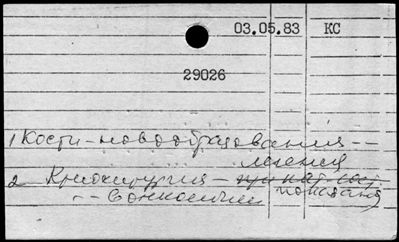 03.05.83 КС
29026
1 Кости - новообразования --
лечения
2 Криохирургия - показания
-- в онкологии